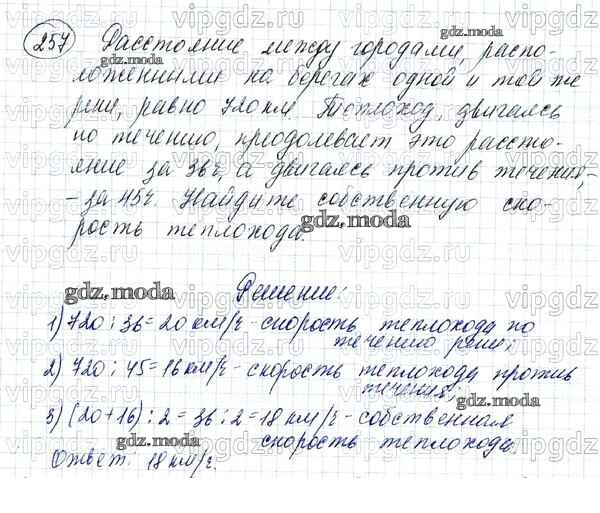 257 Расстояние между городами, распо-
ложенными на берегах одной и той же
реки, равно 720 км. Теплоход, двигаясь
по течению, преодолевает это расстоя-
ние за 36ч, а двигаясь против течения,-
- за 45ч. Найдите собственную ско-
рость теплохода.
Решение:
1) 720 : 36 = 20 км/ч - скорость теплохода по
течению реки;
2) 720 : 45 = 16 км/ч - скорость теплохода против
течения;
3) (20+16) : 2 = 36 : 2 = 18 км/ч - собственная
скорость теплохода.
Ответ: 18 км/ч.